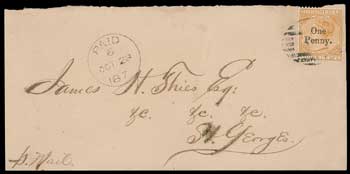 PAID
6
OCT 29
187
One
Penny.
James H. Thies Esq:
&c. &c. &c.
St. Georges.
p. Mail.